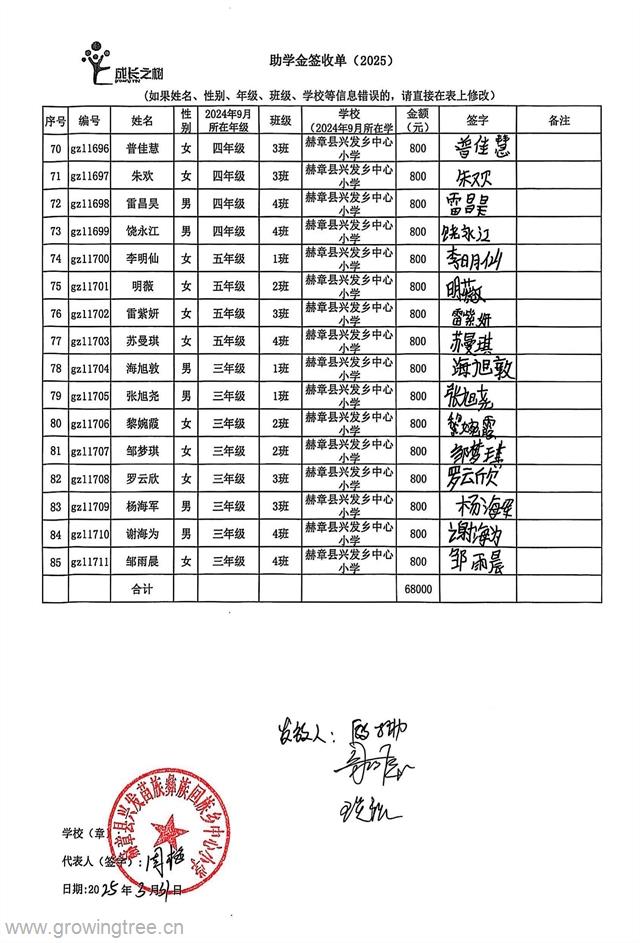 成长之树
助学金签收单（2025）
（如果姓名、性别、年级、班级、学校等信息错误的，请直接在表上修改）
序号 编号 姓名 性别 2024年9月所在年级 班级 学校（2024年9月所在学 金额（元） 签字 备注
70 gz11696 普佳慧 女 四年级 3班 赫章县兴发乡中心小学 800 普佳慧
71 gz11697 朱欢 女 四年级 3班 赫章县兴发乡中心小学 800 朱欢
72 gz11698 雷昌昊 男 四年级 4班 赫章县兴发乡中心小学 800 雷昌昊
73 gz11699 饶永江 男 四年级 4班 赫章县兴发乡中心小学 800 饶永江
74 gz11700 李明仙 女 五年级 1班 赫章县兴发乡中心小学 800 李明仙
75 gz11701 明薇 女 五年级 2班 赫章县兴发乡中心小学 800 明薇
76 gz11702 雷紫妍 女 五年级 3班 赫章县兴发乡中心小学 800 雷紫妍
77 gz11703 苏曼琪 女 五年级 4班 赫章县兴发乡中心小学 800 苏曼琪
78 gz11704 海旭敦 男 三年级 1班 赫章县兴发乡中心小学 800 海旭敦
79 gz11705 张旭尧 男 三年级 1班 赫章县兴发乡中心小学 800 张旭尧
80 gz11706 黎婉霞 女 二年级 2班 赫章县兴发乡中心小学 800 黎婉霞
81 gz11707 邹梦琪 女 三年级 2班 赫章县兴发乡中心小学 800 邹梦琪
82 gz11708 罗云欣 女 三年级 3班 赫章县兴发乡中心小学 800 罗云欣
83 gz11709 杨海军 男 三年级 3班 赫章县兴发乡中心小学 800 杨海军
84 gz11710 谢海为 男 三年级 4班 赫章县兴发乡中心小学 800 谢海为
85 gz11711 邹雨晨 女 三年级 4班 赫章县兴发乡中心小学 800 邹雨晨
合计 68000
发放人：
赫章县兴发苗族彝族回族乡中心小学
学校（章）
代表人（签字）：周艳
日期：2025年3月31日
www.growingtree.cn